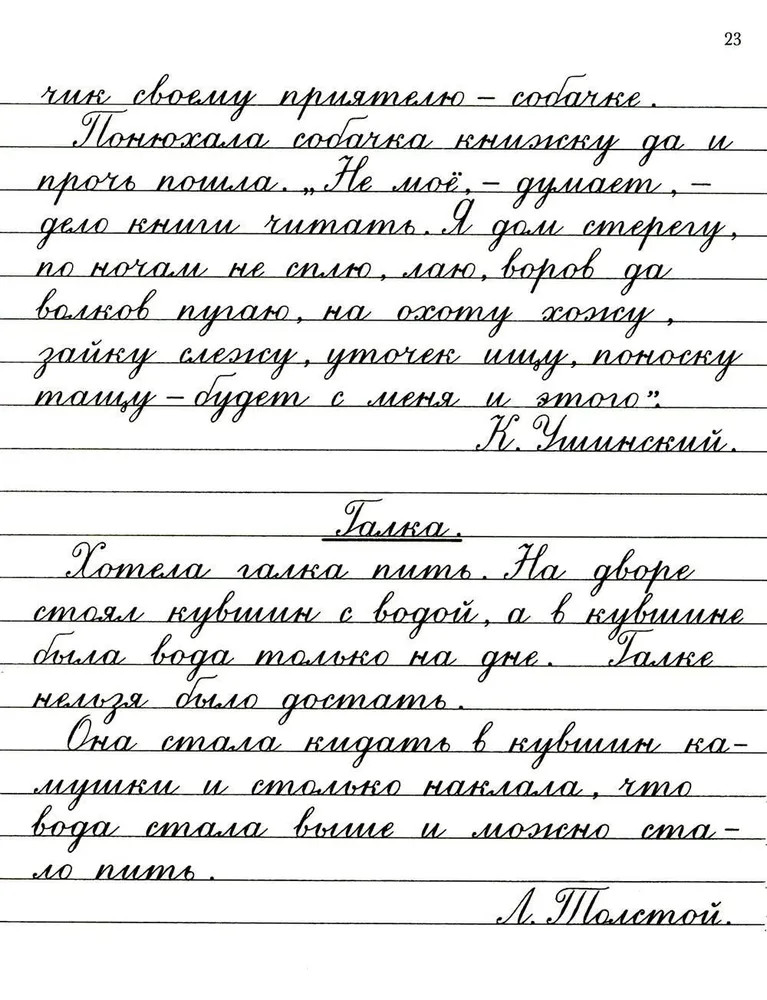 23
чик своему приятелю – собачке.
Понюхала собачка книжку да и
прочь пошла. „Не моё, – думает, –
дело книги читать. Я дом стерегу,
по ночам не сплю, лаю, воров да
волков пугаю, на охоту хожу,
зайку слежу, уточек ищу, поноску
тащу – будет с меня и этого”.
К. Ушинский.
Галка.
Хотела галка пить. На дворе
стоял кувшин с водой, а в кувшине
была вода только на дне. Галке
нельзя было достать.
Она стала кидать в кувшин ка-
мушки и столько наклала, что
вода стала выше и можно ста-
ло пить.
Л. Толстой.